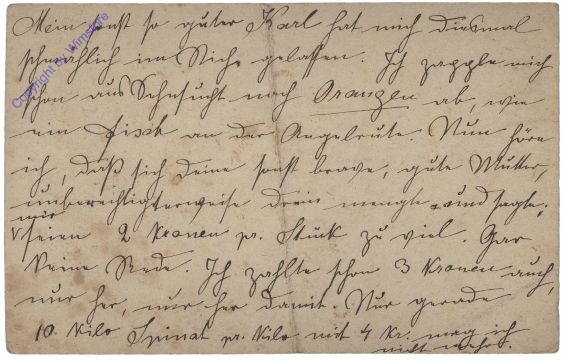 Mein sonst so guter Karl hat mich diesmal
schmählich im Stiche gelassen. Ich zapple mich
schon aus Sehnsucht nach Oranzen ab, wie
ein Fisch an der Angelrute. Nun höre
ich, daß sich deine sonst brave, gute Mutter,
unberechtigterweise drein mengte und sagte,
mir
seien 2 Kronen pr. Stück zu viel. Gar
keine Rede. Ich zahlte schon 3 Kronen auch,
nur her, nur her damit. Nur gerade
10 Kilo Spinat pr. Kilo mit 4 Kr. mag ich
nicht mehr.
Copyright by Wimstore